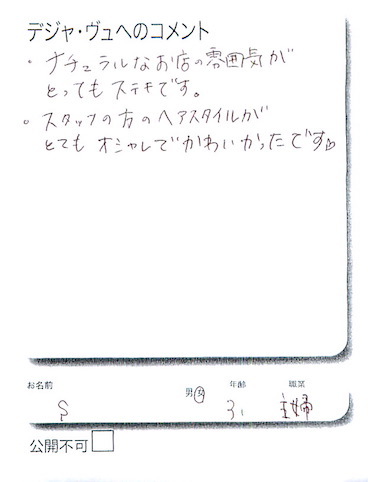 デジャ・ヴュへのコメント
・ナチュラルなお店の雰囲気が
とってもステキです。
・スタッフの方のヘアスタイルが
とてもオシャレでかわいかったです
お名前 男 女 年齢 職業
S 31 主婦
公開不可